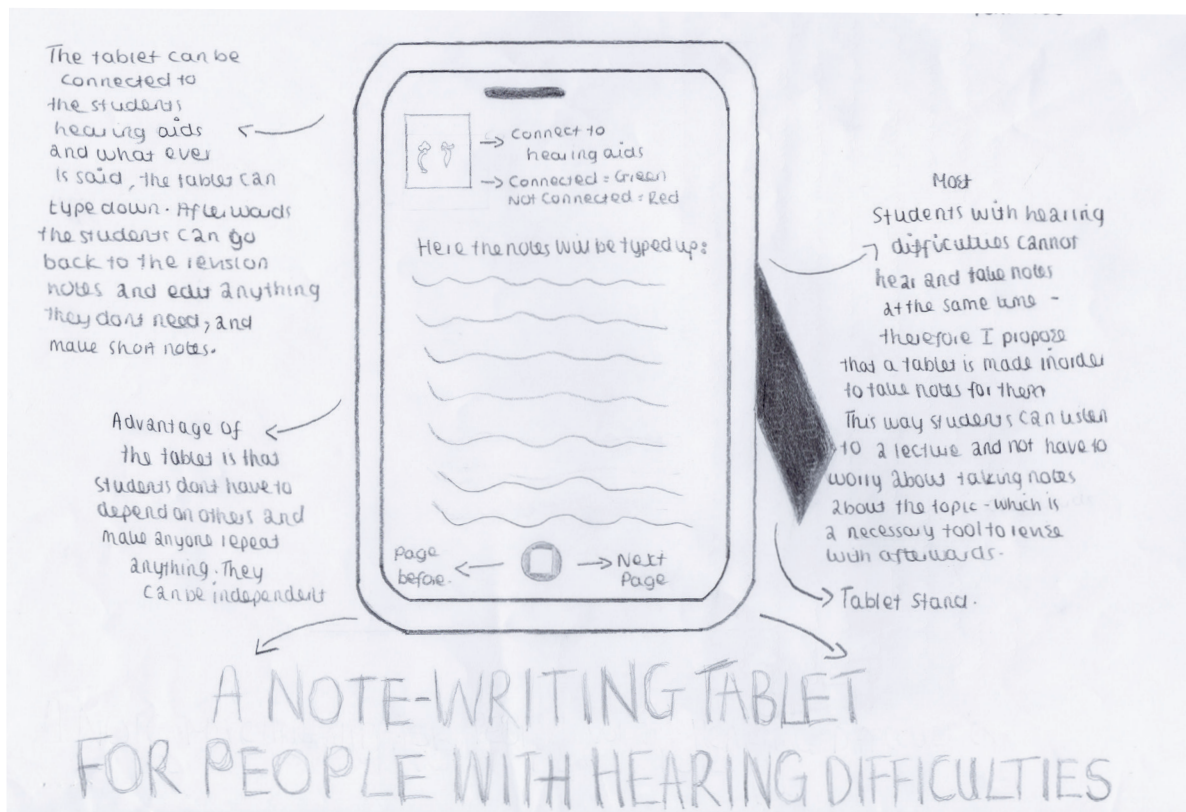 The tablet can be
connected to
the students
hearing aids
and what ever
is said, the tablet can
type down. Afterwards
the students can go
back to the revision
notes and edit anything
they dont need, and
make short notes.
Advantage of
the tablet is that
students dont have to
depend on others and
make anyone repeat
anything. They
can be independent
Connect to
hearing aids
Connected = Green
Not Connected = Red
Here the notes will be typed up:
Page
before.
Next
Page
Most
students with hearing
difficulties cannot
hear and take notes
at the same time -
therefore I propose
that a tablet is made inorder
to take notes for them
This way students can listen
to a lecture and not have to
worry about taking notes
about the topic - which is
a necessary tool to revise
with afterwards.
Tablet Stand.
A NOTE-WRITING TABLET
FOR PEOPLE WITH HEARING DIFFICULTIES